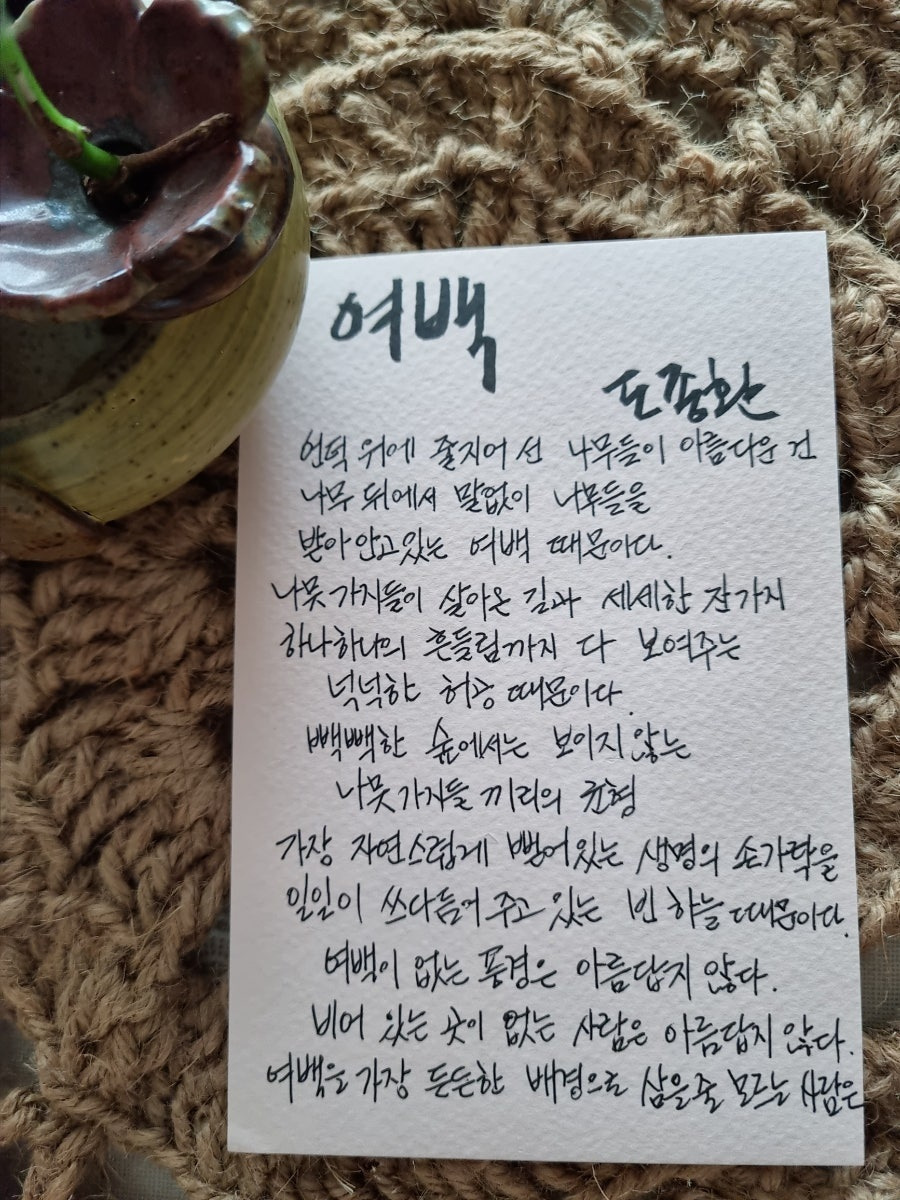 여백
도종환
언덕 위에 줄지어 선 나무들이 아름다운 건
나무 뒤에서 말없이 나무들을
받아 안고 있는 여백 때문이다.
나뭇가지들이 살아온 길과 세세한 잔가지
하나하나의 흔들림까지 다 보여주는
넉넉한 허공 때문이다.
빽빽한 숲에서는 보이지 않는
나뭇가지들 끼리의 균형
가장 자연스럽게 뻗어있는 생명의 손가락을
일일이 쓰다듬어 주고 있는 빈 하늘 때문이다.
여백이 없는 풍경은 아름답지 않다.
비어 있는 곳이 없는 사람은 아름답지 않다.
여백을 가장 든든한 배경으로 삼을 줄 모르는 사람은